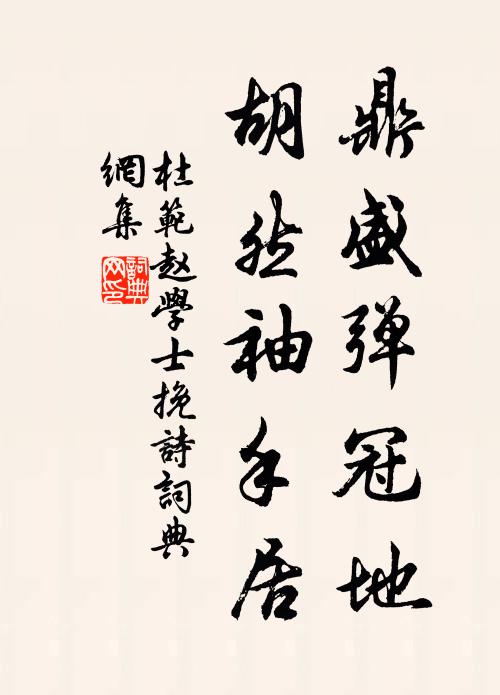 鼎盛弹冠地
胡然袖手居
杜範赵學士挽詩詞典
網集
詞典
网印